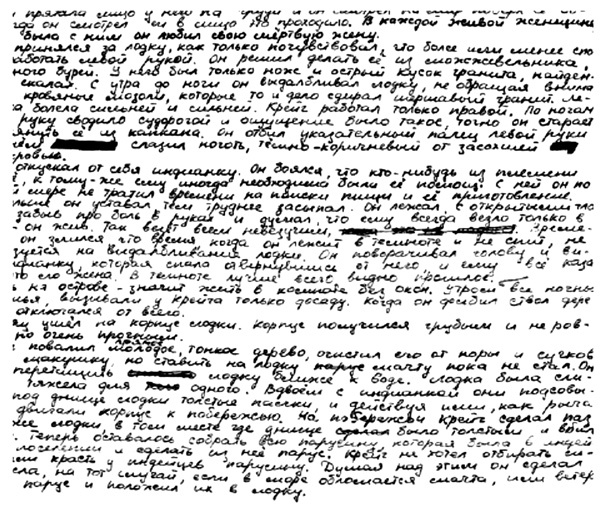 прятала лицо у него на груди и он смотрел на
гда он смотрел ей в лицо это проходило. В каждой живой женщине
было с ним он любил свою мёртвую жену.
принялся за лодку, как только почувствовал, что более или менее спо
работать левой рукой. Он решил делать её из можжевельника,
ного бурей. У него был только нож и острый кусок гранита, найден
скалах. С утра до ночи он выдалбливал лодку, не обращая внима
кровяные мозоли, которые то и дело сдирал шершавый гранит. Ле
ка болела сильней и сильней. Крейг работал только правой. По ночам
руку сводило судорогой и ощущение было такое, точно он старает
януть её из капкана. Он отбил указательный палец левой руки
слазил ноготь, тёмно-коричневый от засохшей
кровью.
отпускал от себя индианку. Он боялся, что кто-нибудь из племени
, к тому-же ему иногда необходима была её помощь. С ней он по
мере не тратил времени на поиски пищи и её приготовление.
льше он уставал тем труднее засыпал. Он лежал с открытыми гла
забыв про боль в руках и думал, что ему всегда везло только в
- он жив. Так везёт всем невезучим, Време-
он злился что время когда он лежит в темноте и не спит, не
зуется на выдалбливание лодки. Он поворачивал голову и ви-
индианку которая спала отвернувшись от него и ему всё каза
то его жена. В темноте лучше всего видно прошлое
ь на острове - значит жить в комнате без окон. Утром все ночны
лья, вызывали у Крейга только досаду. Когда он долбил ствол дере
отключался от всего.
яц ушёл на корпус лодки. Корпус получился грубым и не ров-
но очень прочным.
повалил молодое, тонкое дерево, очистил его от коры и сучков
макушку, но ставить на лодку парус мачту пока не стал. Он
перетащить лодку ближе к воде. Лодка была сли-
тяжела для одного. Вдвоём с индианкой они подсовы-
под днище лодки толстые палки и действуя ими, как рыча
двигали корпус к побережью. На побережьи Крейг сделал паз
же лодки в том месте где днище было толстым и вбил
. Теперь оставалось собрать всю парусину которая была в индей
поселении и сделать из неё парус. Крейг не хотел отбирать си-
или красть у индейцев парусину. Думая над этим он сделал
сла, на тот случай, если в море обломается мачта, или ветер
парус и положил их в лодку.